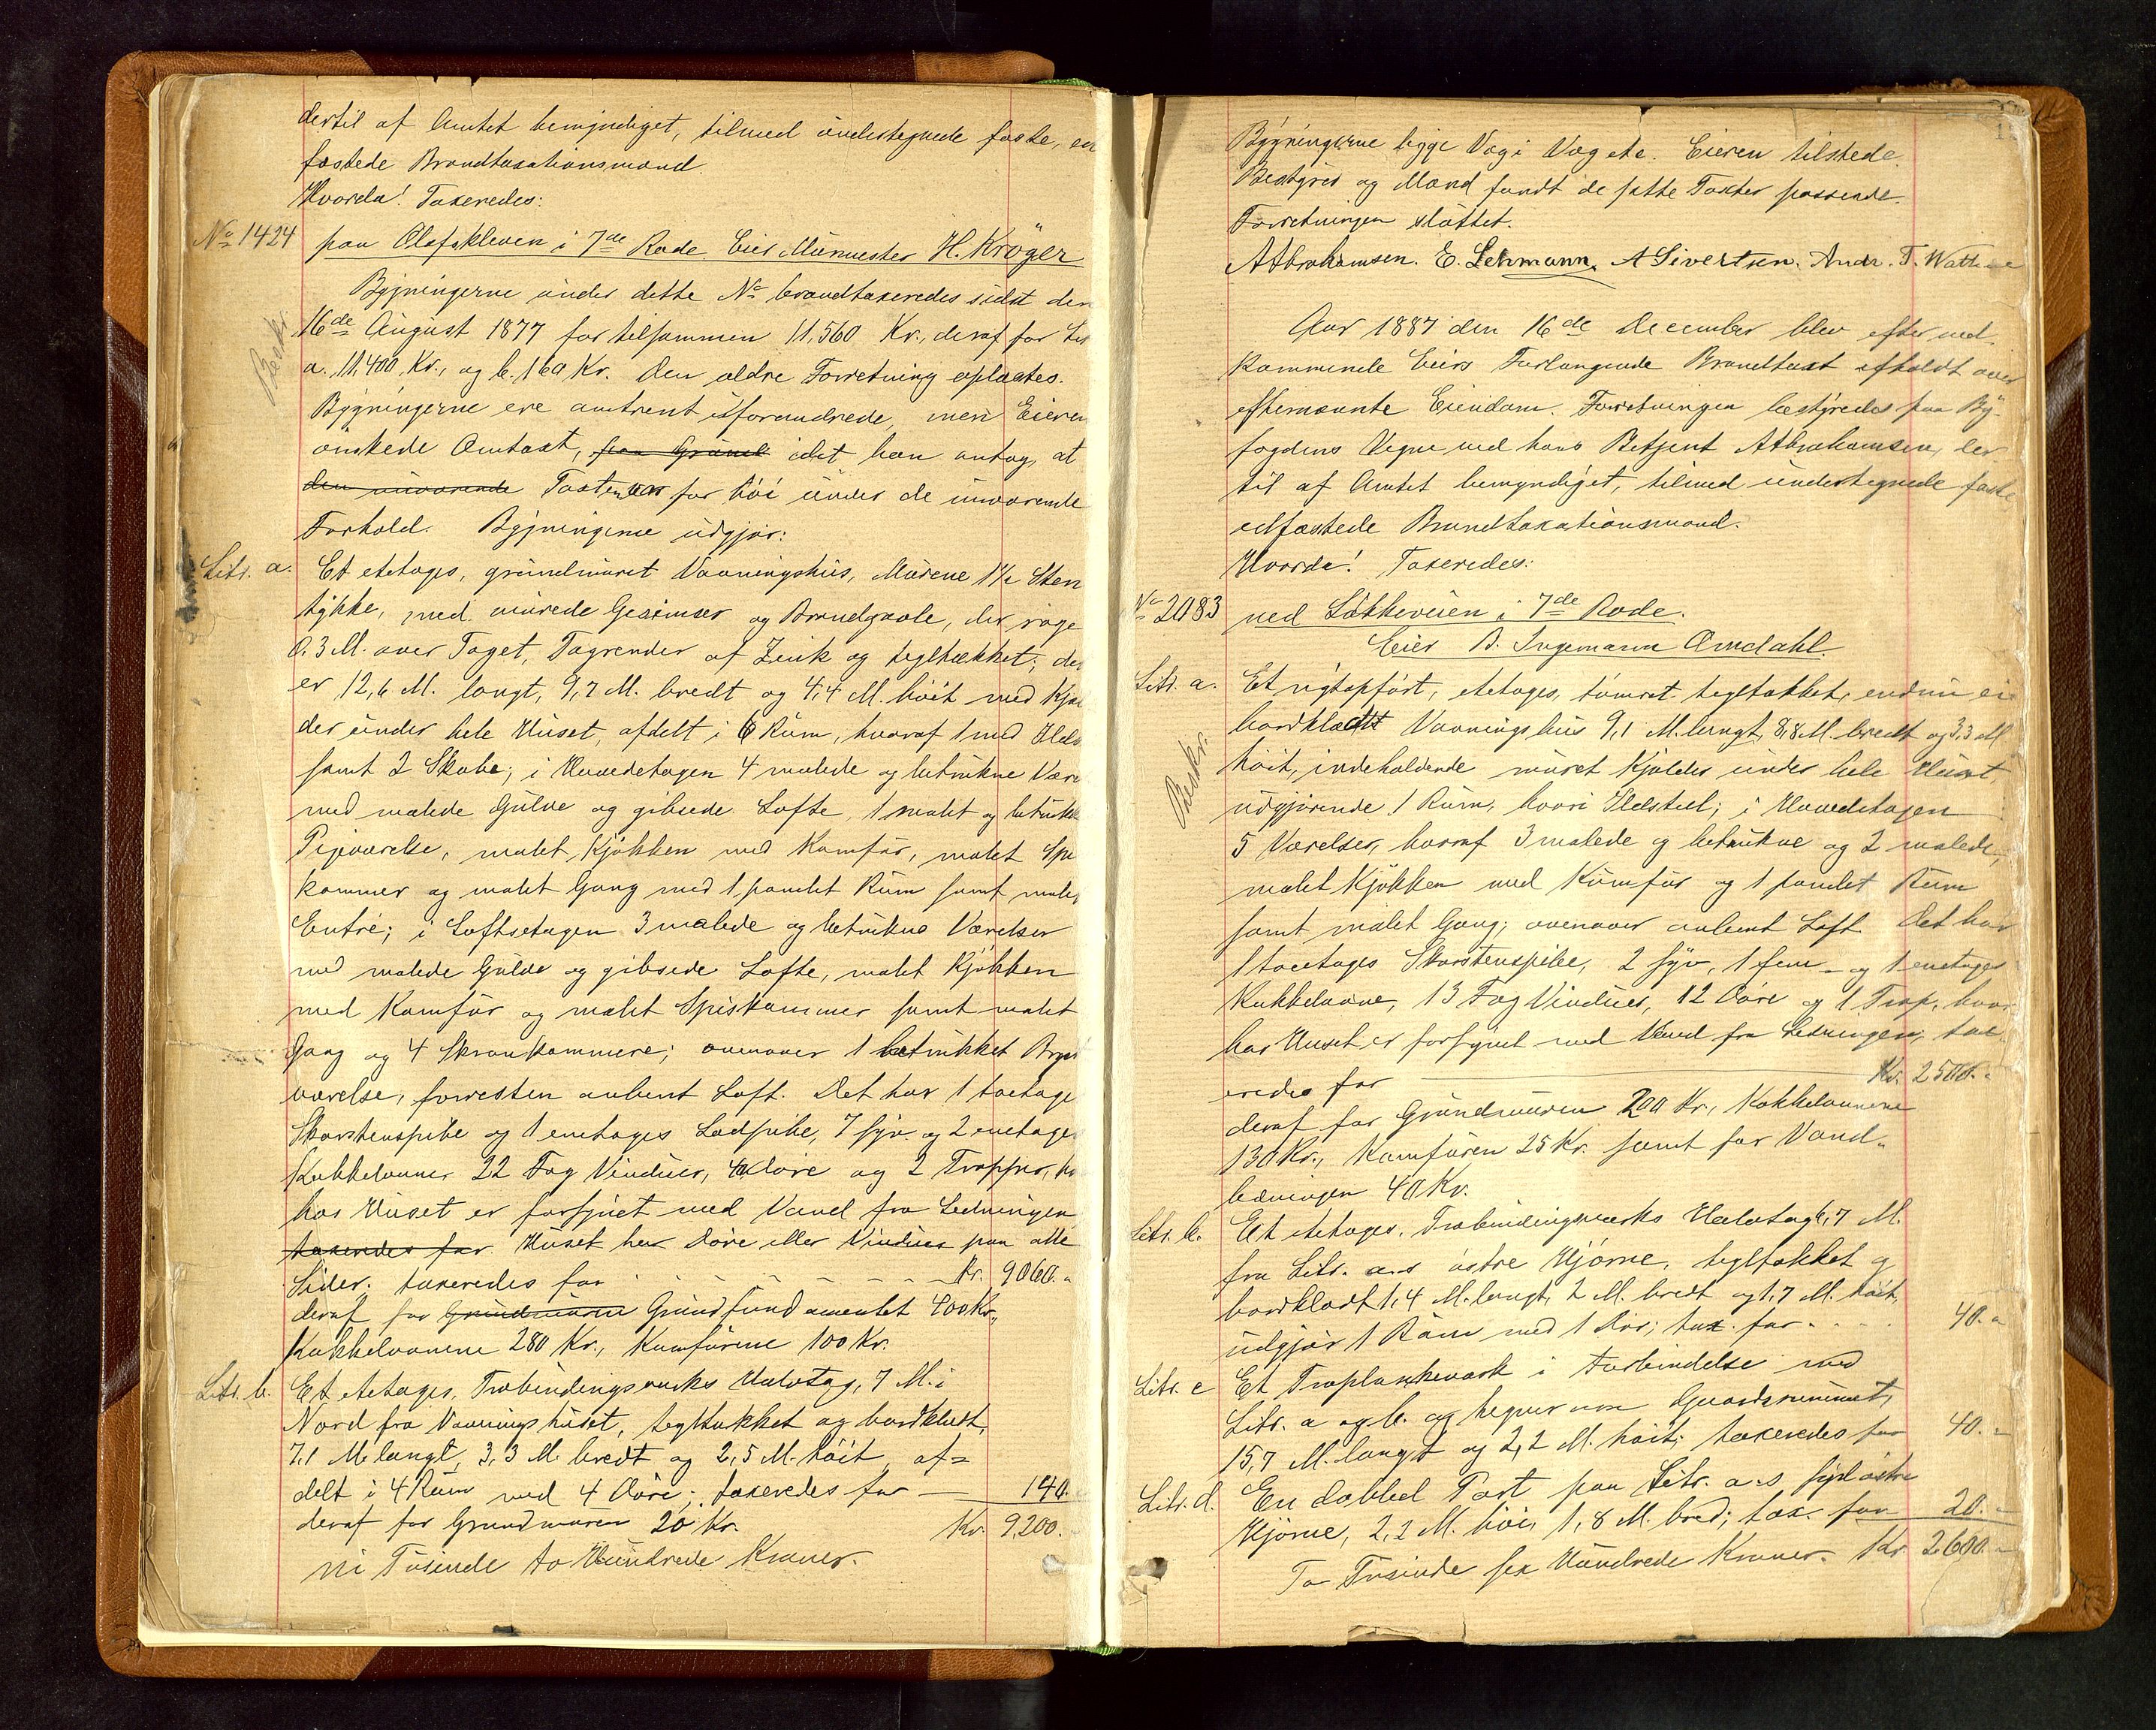 dertil af Amtet bemyndiget, tilmed undertegnede faste, ed
fæstede Brandtaxationsmænd.
Hvorda! Taxeredes:
No 1424 paa Olafskleven i 7de Rode. Eier Murmester H. Kröger
Bygningerne under dette No brandtaxeredes sidst den
16de August 1877 for tilsammen 11,560 Kr., deraf for Litr
a. 11.400, Kr., og b. 160 Kr. Den ældre Forretning oplæstes.
Beskr.
Bygningerne ere omtrent uforandrede, men Eieren
ønskede Omtaxt, paa Grund idet han antog, at
den nuværende Taxten var for höi under de nuværende
Forhold. Bygningerne udgjør:
Litr. a. Et etetages, grundmuret Vaaningshus, Murene 1½ Sten
tykke, med murede Gesimser og Brandgavle, der rage
0.3 M. over Taget, Tagrender af Zink og tegltækket; det
er 12,6 M. langt, 9,7 M. bredt og 4,4 M. höit med Kjæl
der under hele Huset, afdelt i 6 Rum, hvoraf 1 med Ildst.
samt 2 Skabe; i Hovedetagen 4 malede og betrukne Være
med malede Gulve og gibsede Lofte, 1 malet og betrukk
Pigeværelse, malet Kjøkken med Komfur, malet Spi
kammer og malet Gang med 1 pandet Rum samt malet
Entré; i Loftsetagen 3 malede og betrukne Værelser
med malede Gulve og gibsede Lofte, malet Kjøkken
med Komfur og malet Spiskammer samt malet
Gang og 4 Skraakammere; ovenover 1 betrukket Bryst
værelse, forresten aabent Loft. Det har 1 toetages
Skorstenspibe og 1 enetages Lodpibe, 7 syv- og 2 enetages
Kakkelovner 22 Fag Vinduer, 40 Döre og 2 Trapper, hv
hos Huset er forsynet med Vand fra Ledningen
taxeredes for. Huset har Döre eller Vinduer paa alle
Sider; taxeredes for - - - - - - Kr. 9060.
deraf for Grundmuren Grundfundamentet 400 Kr.,
Kakkelovnene 280 Kr., Komfurene 100 Kr.
Litr. b. Et etetages, Træbindingsværks Halvtag, 7 M. i
Nord fra Vaaningshuset, tegltækket og bordklædt,
7,1 M. langt, 3,3 M. bredt og 2,5 M. höit, af=
delt i 4 Rum med 4 Döre; taxeredes for — 140.
deraf for Grundmuren 20 Kr. Kr. 9,200.
ni Tusinde to Hundrede Kroner.
Bygningerne ligge Væg i Væg etc. Eieren tilstede.
Bestyrer og Mænd fandt de satte Taxter passende.
Forretningen sluttet.
A Abrahamsen. E. Lehmann. A Sivertsen. Andr. T. Watne
Aar 1887 den 16de December blev efter ved-
kommende Eiers Forlangende Brandtaxt afholdt over
efternævnte Eiendom. Forretningen bestyredes paa By-
fogdens Vegne ved hans Betjent A Abrahamsen, der
til af Amtet bemyndiget, tilmed undertegnede faste
edfæstede Brandtaxationsmænd.
Hvorda! Taxeredes:
No 2083 ved Løkkeveien i 7de Rode.
Eier B. Ingemann Omdahl.
Litr. a. Et nyt opført, etetages, tømret tegltækket, endnu ei
bordklædt Vaaningshus 9,1 M. langt, 8,8 M. bredt og 3,3 M
höit, indeholdende muret Kjælder under hele Huset,
Beskr.
udgjørende 1 Rum, hvori Ildsted; i Hovedetagen
5 Værelser, hvoraf 3 malede og betrukne og 2 malede,
malet Kjøkken med Komfur og 1 pandet Rum
samt malet Gang; ovenover aabent Loft. Det har
1 toetages Skorstenspibe, 2 syv, 1 fem- og 1 enetages
Kakkelovne, 13 Fag Vinduer, 12 Döre og 1 Trap, hvor
hos Huset er forsynet med Vand fra Ledningen, tax
eredes for Kr. 2500.
deraf for Grundmuren 200 Kr., Kakkelovnene
130 Kr., Komfuren 25 Kr. samt for Vand-
ledningen 40 Kr.
Litr. b. Et etetages, Træbindingsværks Halvtag 6,7 M.
fra Litr. a.s østre Hjørne, tegltækket og
bordklædt 1,4 M. langt, 2 M. bredt og 1,7 M. höit,
udgjør 1 Rum med 1 Dör; tax. for - - - 40.
Litr. c Et Træplankeværk i Forbindelse med
Litr. a og b. og hegner om Gaardsrummet,
15,7 M. langt og 2,2 M. höit; taxeredes for 40.
Litr. d. En dobbel Port paa Litr. a.s sydøstre
Hjørne, 2,2 M. höi, 1,8 M. bred; tax. for 20.
To Tusinde sex Hundrede Kroner. Kr. 2.600.